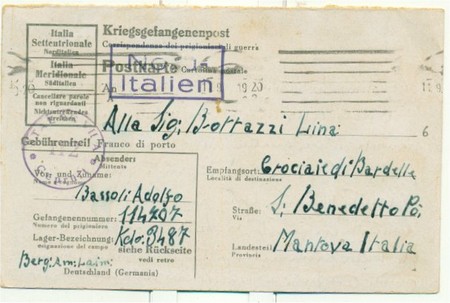 Italia
Settentrionale
Norditalien
Italia
Meridionale
Süditalien
Cancellare parole
non riguardanti
Nichtzutreffendes
streichen
Kriegsgefangenenpost
Corrispondenza dei prigionieri di guerra
Postkarte Cartolina postale
Nach
Italien
An
Alla Sig. Bottazzi Lina
6
Gebührenfrei! Franco di porto
Absenders
Mittente
Vor- und Zuname:
Bassoli Adolfo
Gefangenennummer: 114707
Numero del prigioniero
Lager-Bezeichnung: Kdo. 3487
siehe Rückseite
vedi retro
Berg: Am: Laim:
Deutschland (Germania)
Empfangsort: Crociaie di Bardelle
Località di destinazione
Straße: S. Benedetto Po.
Via
Landesteil: Mantova Italia
Provincia